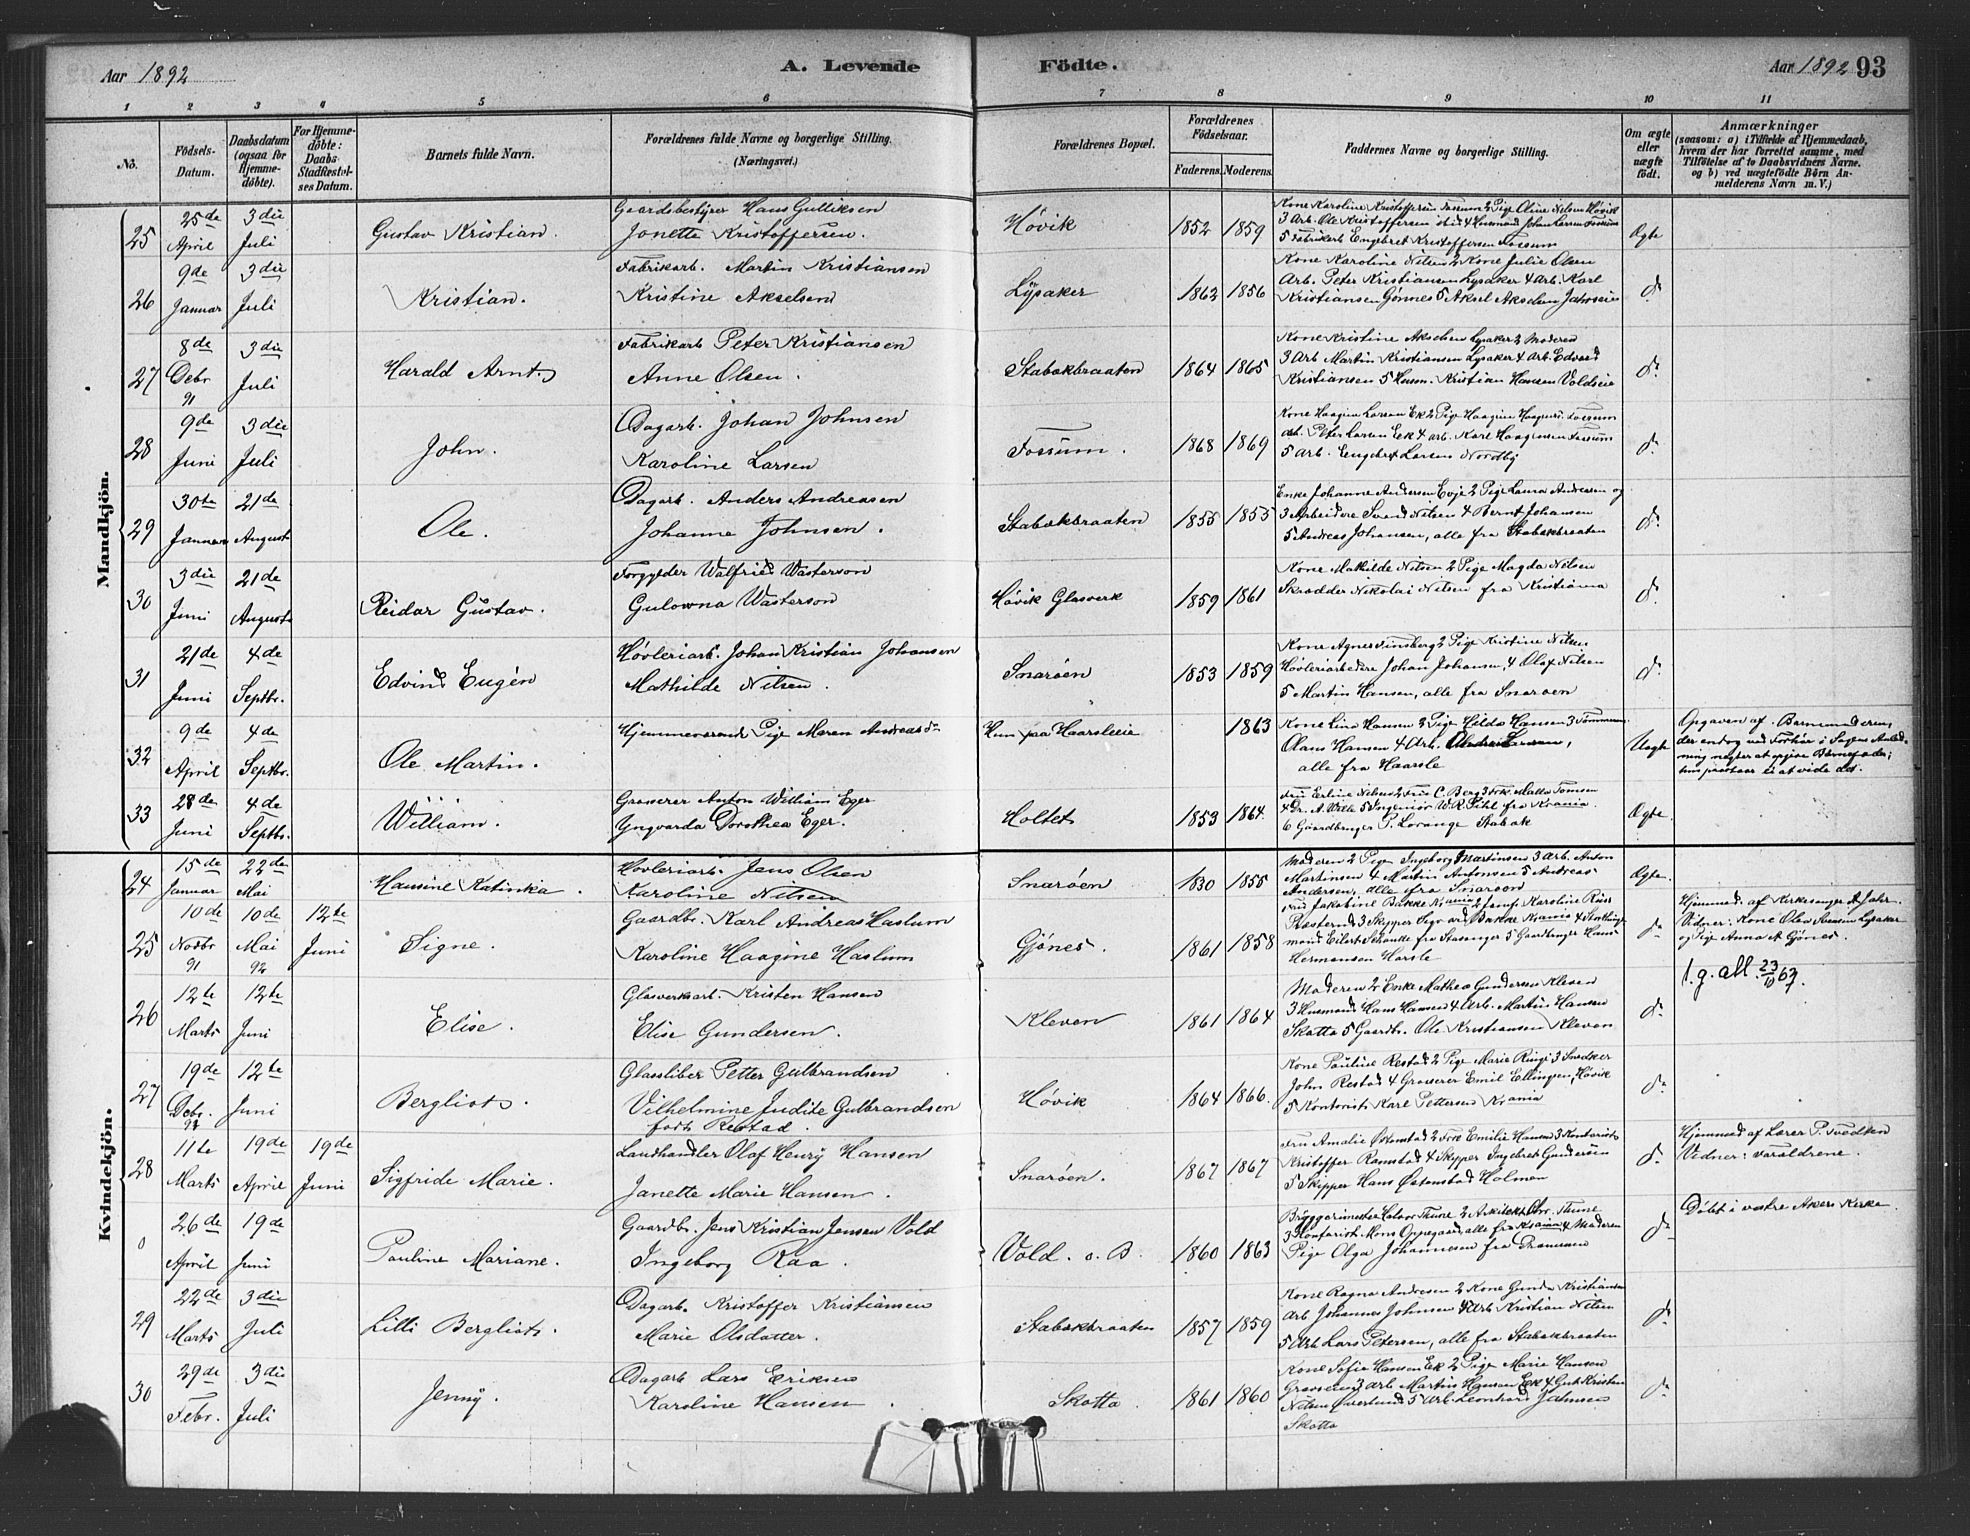 Aar 1892
A. Levende
Födte.
Aar 1892 93
1 2 3 4 5 6 7 8 9 10 11
No.
Födsels-
Datum.
Daabsdatum
(ogsaa for
Hjemme-
döbte).
For Hjemme-
döbte:
Daabs-
Stadfæstel-
ses Datum.
Barnets fulde Navn.
Forældrenes fulde Navne og borgerlige Stilling.
(Næringsvei.)
Forældrenes Bopæl.
Forældrenes
Födselsaar.
Faderens. Moderens.
Faddernes Navne og borgerlige Stilling.
Om ægte
eller
uægte
födt.
Anmærkninger
(saasom: a) i Tilfælde af Hjemmedaab,
hvem der har forrettet samme, med
Tilföielse af to Daabsvidners Navne,
og b) ved uægtefödte Börn An-
melderens Navn m. V.)
Mandkjön.
25
25de April
3die Juli
Gustav Kristian.
Gaardsbestyrer Hans Gulliksen
Jonette Kristoffersen.
Høvik
1852 1859
Kone Karoline Kristoffersen Fossum 2 Pige Oline Nilsen Høvik
3 Arb. Ole Kristoffersen ibid 4 Husmand Johan Larsen Fossum
5 Fabrikarb Engebret Kristoffersen Fossum
Ægte
26
9de Januar
3die Juli
Kristian.
Fabrikarb. Martin Kristiansen
Kristine Akselsen
Lysaker
1862 1856
Kone Karoline Nilsen 2 Kone Julie Olsen
Arb. Peter Kristiansen Lysaker 4 Arb. Karl
Kristiansen Gønnes 5 Aksel Akselsen
do
27
8de Debr 91
3die Juli
Harald Arnt.
Fabrikarb Peter Kristiansen
Anne Olsen.
Stabækbraaten
1864 1865
Kone Kristine Akselsen Lysaker 2 Moderen
3 Arb Martin Kristiansen Lysaker 4 Arb. Edvard
Kristiansen 5 Husm. Kristian Hansen Voldseie
do
28
9de Juni
3die Juli
John.
Dagarb. Johan Johnsen
Karoline Larsen
Fossum.
1868 1869
Kone Haagine Larsen Ek 2 Pige Haagine Haagens. Fossum
Arb. Peter Larsen Ek 4 Arb. Karl Haagensen Fossum
5 Arb. Engebret Larsen Nordby
do
29
30te Januar
21de August
Ole.
Dagarb. Anders Andreasen
Johanne Johnsen.
Stabækbraaten
1855 1855
Enke Johanne Andersen Evje 2 Pige Laura Andresen og
3 Arbeidere Svend Nilsen 4 Bernt Johansen
5 Andreas Johansen, alle fra Stabækbraaten
do
30
3die Juni
21de August
Reidar Gustav.
Forgylder Walfried Wasterson
Gulowna Wasterson
Høvik Glasverk
1859 1861
Kone Mathilde Nilsen 2 Pige Magda Nilsen
Skrædder Nikolai Nilsen fra Kristiania
do
31
21de Juni
4de Septbr.
Edvind Eugén
Høvleriarb. Johan Kristian Johansen
Mathilde Nilsen.
Snarøen
1853 1859
Kone Agnes Finsberg 2 Pige Kristine Nilsen
Høvleriarbeidere Johan Johansen, 4 Olaf Nilsen
5 Martin Hansen, alle fra Snarøen
do
32
9de April
4de Septbr.
Ole Martin.
Hjemmeværende Pige Maren Andreasdr
Hun paa Haarsleie
1863
Kone Lina Hansen 2 Pige Hilda Hansen 3 Tømmerm.
Olans Hansen 4 Arb. Andreas Larsen,
alle fra Haarsle
Uægte
Opgaven af Barnemoderen,
der endog ved Forhør i Sagens Anled-
ning nægter at opgive Barnefader;
hun paastaar ei at vide det.
33
28de Juni
4de Septbr.
William.
Grosserer Anton William Eger
Yngvarda Dorothea Eger.
Holtet
1853 1864.
Fru Erline Nilsen 2 Fru C. Berg 3 Frk. Malla Tomsen
4 Dr. A. Wille 5 Ingeniør W. R. Pihl fra Krania
6 Gaardbruger P. Lorange Stabæk
Ægte.
Kvindekjön.
24
15de Januar
22de Mai
Hansine Katinka.
Høvleriarb. Jens Olsen
Karoline Nilsen
Snarøen
1830 1855
Moderen 2 Pige Ingeborg Martinsen 3 Arb. Anton
Martinsen 4 Martin Antonsen 5 Andreas
Andersen, alle fra Snarøen
Ægte.
25
10de Novbr 91
10de Mai 92
12te Juni
Signe.
Gaardbr. Karl Andreas Haslum
Karoline Haagine Haslum
Gjønes.
1861 1858
Fru Jakobine Bakke Krania 2 Jomf. Karoline Russ
3 Skipper Sigvard Bakke Krania 4
Eilert Schanke fra Stavanger 5 Gaardbruger Hans
Hermansen Harsle
do
Hjemmed. af Kirkesanger A Jahr.
Vidner: Kone Olea Lysaker
og Pige Anna A Gjønes.
l.g. att. 23/10 63
26
12te Marts
12te Juni
Elise.
Glasverksarb. Kristen Hansen
Elise Gundersen.
Kleven
1861 1864
Moderen 2 Enke Mathea Gundersen Kleven
3 Husmand Hans Hansen 4 Arb. Martin Hansen
Skotta 5 Gaardbr. Ole Kristiansen Kleven
do
27
19de Debr. 91
12te Juni
Bergliot.
Glassliber Petter Gulbrandsen
Vilhelmine Judite Gulbrandsen
født Restad.
Høvik
1864 1866.
Kone Pauline Restad 2 Pige Marie Ringi 3 Snedker
John Restad 4 Grosserer Emil Ellingsen, Høvik
5 Kontorist Karl Pettersen Krania
do
28
11te Marts
19de April
19de Juni
Sigfride Marie.
Landhandler Olaf Henry Hansen
Janette Marie Hansen.
Snarøen.
1867 1867
Fru Amalie Østenstad 2 Frk Emilie Hansen 3 Kontorist
Kristoffer Ramstad 4 Skipper Ingebret Gundersen
5 Skipper Hans Østenstad Holmen
do
Hjemmed af Lærer P. Tvedten
Vidner: Forældrene.
0
26de April
19de Juni
Pauline Mariane.
Gaardbr. Jens Kristian Jensen Vold
Ingeborg Raa.
Vold. o. B.
1860 1863
Bryggerimester Halvor Thune 2 Arkitekt Chr. Thune
3 Kontorist Mons Oppegaard, alle fra Krania 4 Moderen
Pige Olga Johannesen fra Drammen
do
Døbt i vestre Akers Kirke.
29
22de Marts
3die Juli
Lilli Bergliot.
Dagarb. Kristoffer Kristiansen
Marie Olsdatter.
Stabækbraaten
1857 1859
Kone Ragna Andresen 2 Kone Gunda Kristiansen
Arb Johannes Johnsen 4 Arb Kristian Nilsen
5 Arb Lars Petersen, alle fra Stabækbraaten
do
30
29de Febr.
3die Juli
Jenny.
Dagarb Lars Eriksen
Karoline Hansen.
Skotta.
1861 1860
Kone Sofie Hansen Ek 2 Pige Marie Hansen
3 Arb Martin Hansen Ek 4 Gut Kristen
Nilsen Øverland 5 Arb. Leonhard Johnsen
Skotta
do